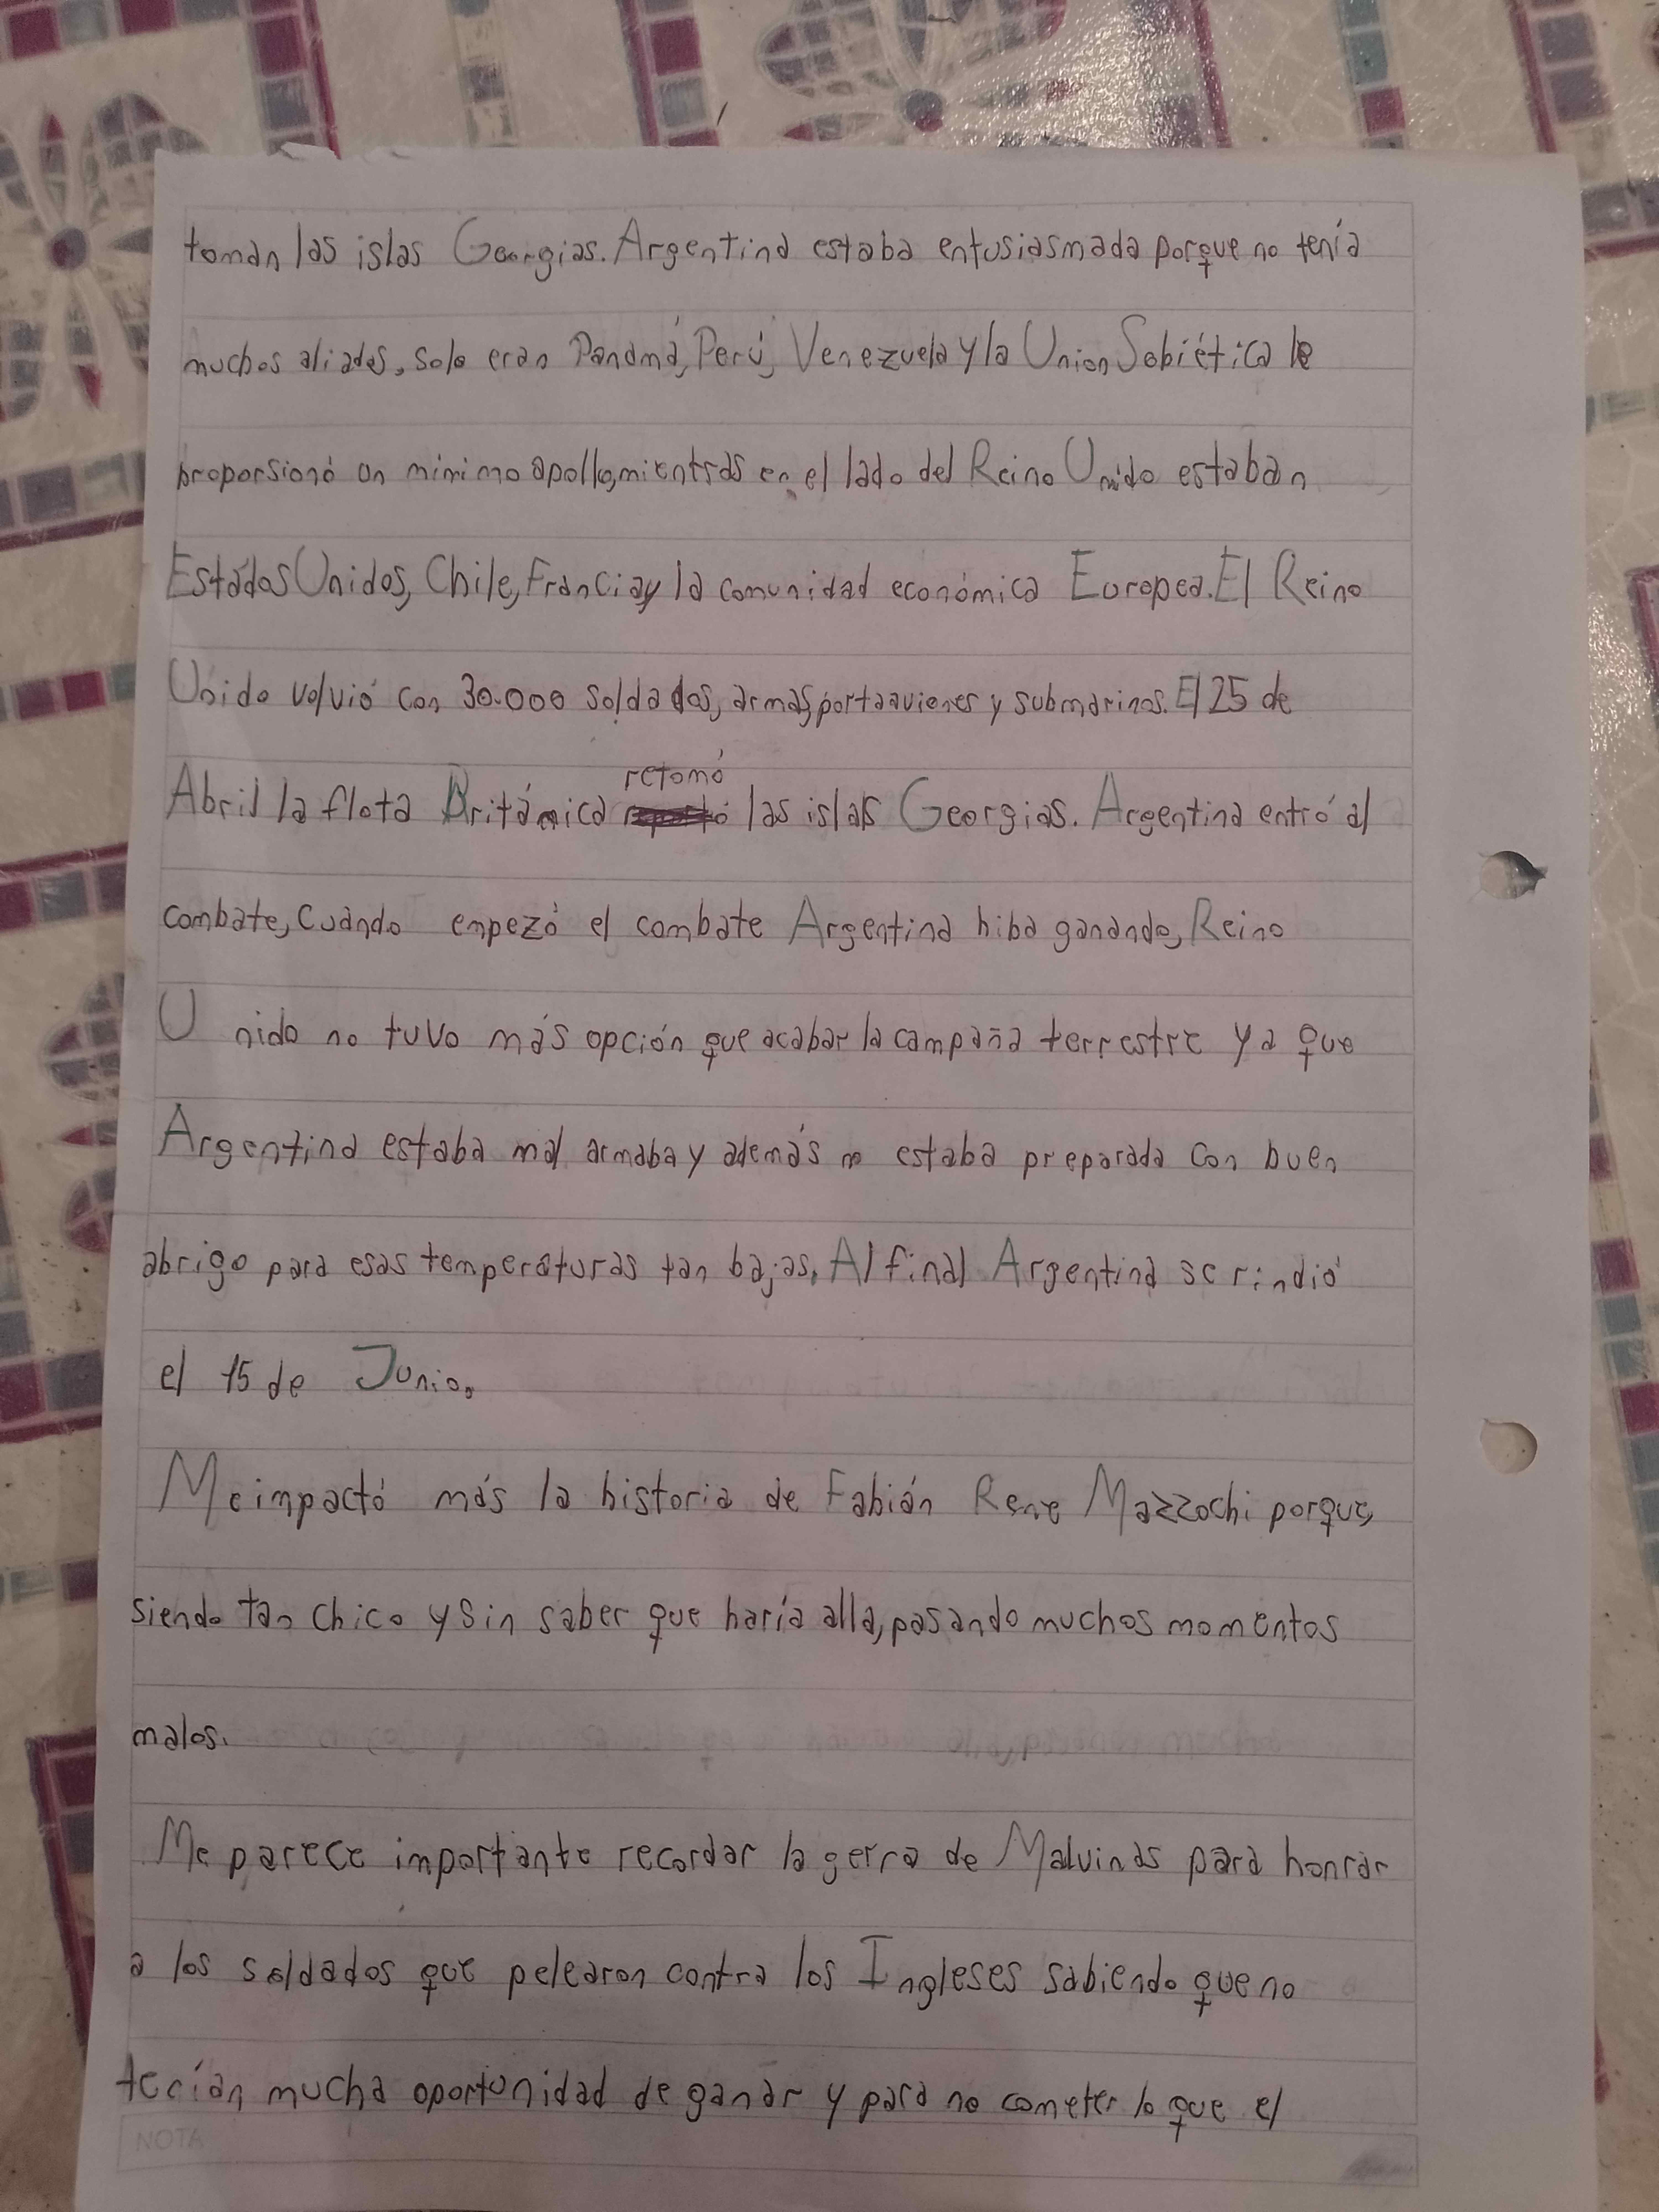 toman las islas Georgias. Argentina estaba entusiasmada porque no tenía
muchos aliados, solo eran Panamá, Perú, Venezuela y la Union Sobiética le
proporsionó un mínimo apollo, mientras en el lado del Reino Unido estaban
Estados Unidos, Chile, Francia y la comunidad económica Europea. El Reino
Unido volvió con 30.000 soldados, armas, portaaviones y submarinos. El 25 de
Abril la flota Británica retomó las islas Georgias. Argentina entró al
combate, Cuándo empezó el combate Argentina hiba ganando, Reino
Unido no tuvo más opción que acabar la campaña terrestre ya que
Argentina estaba mal armaba y además no estaba preparada con buen
abrigo para esas temperaturas tan bajas. Al final Argentina se rindió
el 15 de Junio.
Me impactó más la historia de Fabián Rene Mazzochi porque,
siendo tan chico y sin saber que haría alla, pasando muchos momentos
malos.
Me parece importante recordar la gerra de Malvinas para honrar
a los soldados que pelearon contra los Ingleses sabiendo que no
tenían mucha oportunidad de ganar y para no cometer lo que el
NOTA